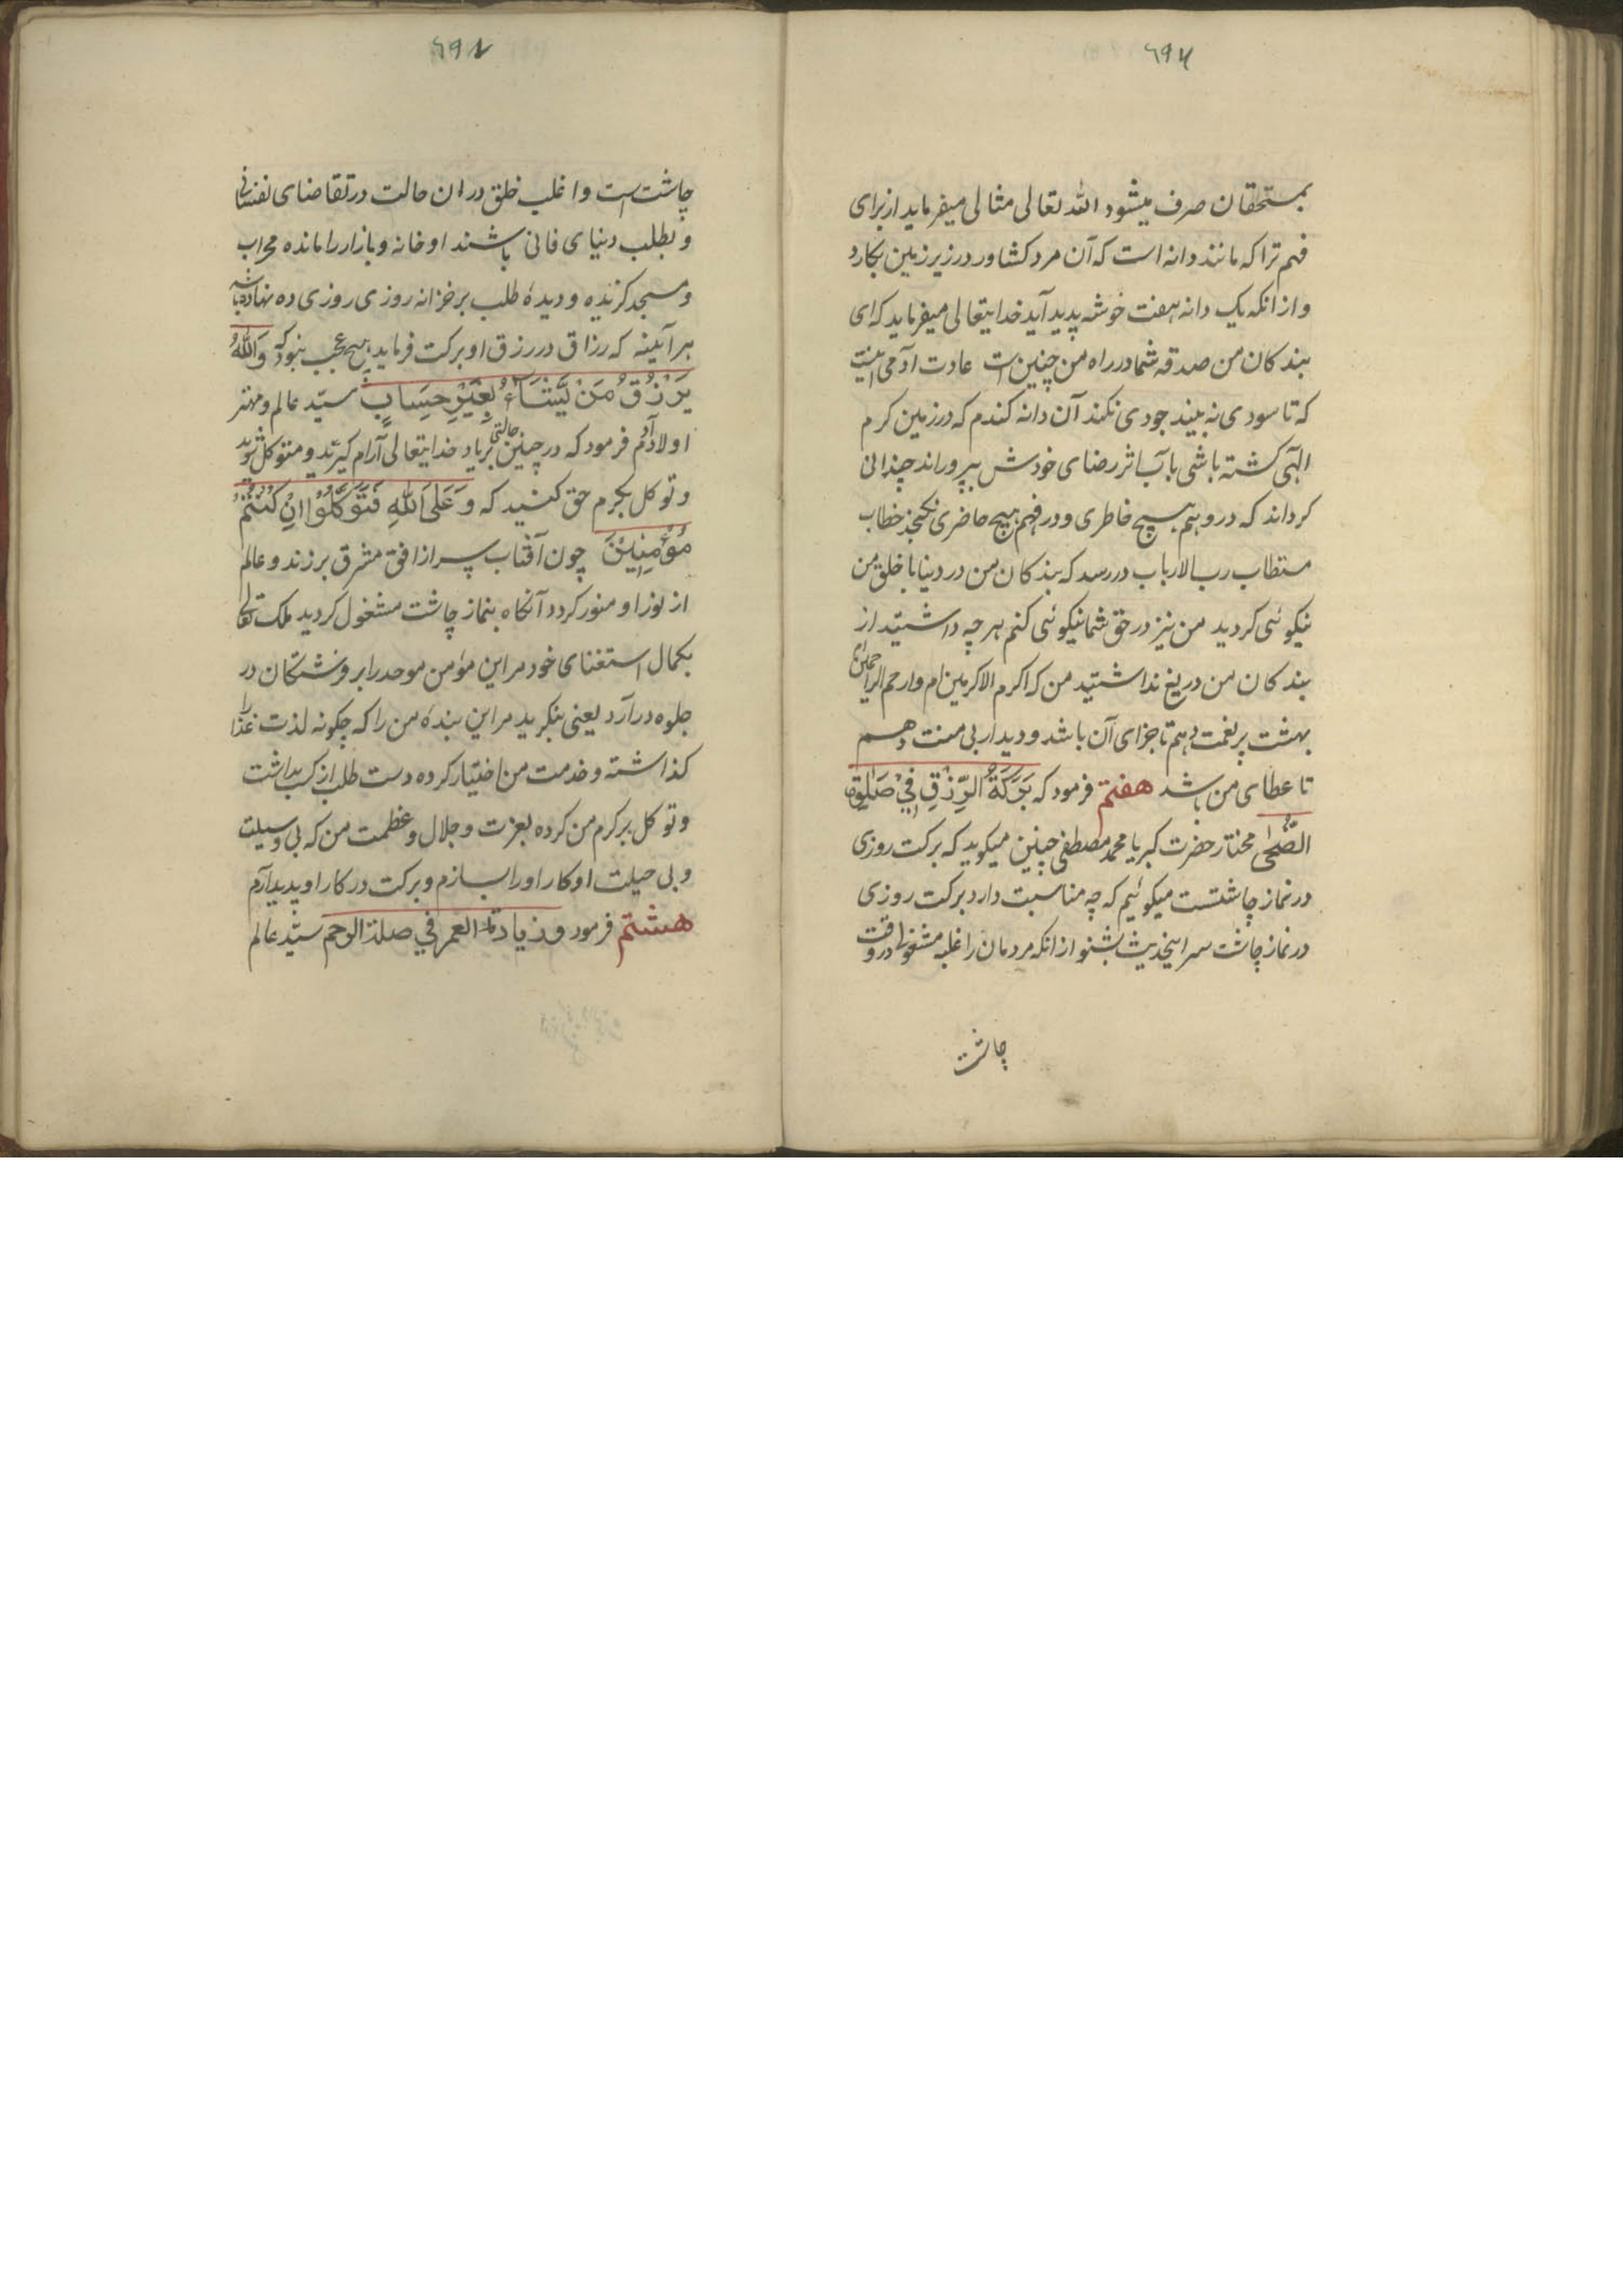 بمستحقان صرف میشود الله تعالی مثالی میفرماید از برای
فهم ترا که مانند دانه است که آن مرد کشاور در زیر زمین بکارد
و از انکه یک دانه هفت خوشه پدید آید خدایتعالی میفرماید که ای
بندکان من صدقه شما در راه من چنین است عادت آدمی اینست
که تا سودی نه بیند جودی نکند آن دانه کندم که در زمین کرم
الهی کشته باشی بآب اثر رضای خودش بپروراند چندانی
کرداند که در وهم هیچ خاطری و در فهم هیچ حاضری نکنجد خطاب
مستطاب رب الارباب در رسد که بندکان من در دنیا با خلق من
نیکوئی کردید من نیز در حق شما نیکوئی کنم هر چه داشتید از
بندکان من دریغ نداشتید من که اکرم الاکرمین ام و ارحم الراحمین ام
بهشت پر نعمت دهم تا جزای آن باشد و دیدار بی منت دهم
تا عطای من باشد هفتم فرمود که بَرَکَةُ الرِّزْقِ فِيْ صَلٰوةِ
الضُّحٰی مختار حضرت کبریا محمد مصطفی چنین میکوید که برکت روزی
در نماز چاشتست میکوئیم که چه مناسبت دارد برکت روزی
در نماز چاشت سر اینحدیث بشنو از انکه مردمان را غلبه مشغولی در وقت
چاشت
چاشت است و اغلب خلق در ان حالت در تقاضای نفسانی
و بطلب دنیای فانی باشند او خانه و بازار را مانده محراب
و مسجد کزیده و دیدهٔ طلب بر خزانه روزی روزی ده نهاده باشد
هر آئینه که رزاق در رزق او برکت فرماید هیچ عجب نبود که وَاللهُ
یَرْزُقُ مَنْ یَّشَاءُ بِغَیْرِ حِسَابٍ سیّد عالم و مهتر
اولاد آدم فرمود که در چنین حالتی بر یاد خدایتعالی آرام کیرید و متوکل شوید
و توکل بکرم حق کنید که وَعَلَی اللهِ فَتَوَکَّلُوْا اِنْ کُنْتُمْ
مُؤْمِنِیْنَ چون آفتاب سر از افق مشرق برزند و عالم
از نور او منور کردد آنکاه بنماز چاشت مشغول کردید ملک تعالی
بکمال استغنای خود مر این مؤمن موحد را بر فرشتکان در
جلوه در آرد یعنی بنکرید مر این بندهٔ من را که چکونه لذت غذا را
کذاشته و خدمت من اختیار کرده دست طلب از کسب بداشت
و توکل بر کرم من کرده بعزت و جلال و عظمت من که بی وسیلت
و بی حیلت او کار او را بسازم و برکت در کار او پدید آرم
هشتم فرمود و زیادة العمر في صلة الرحم سیّد عالم